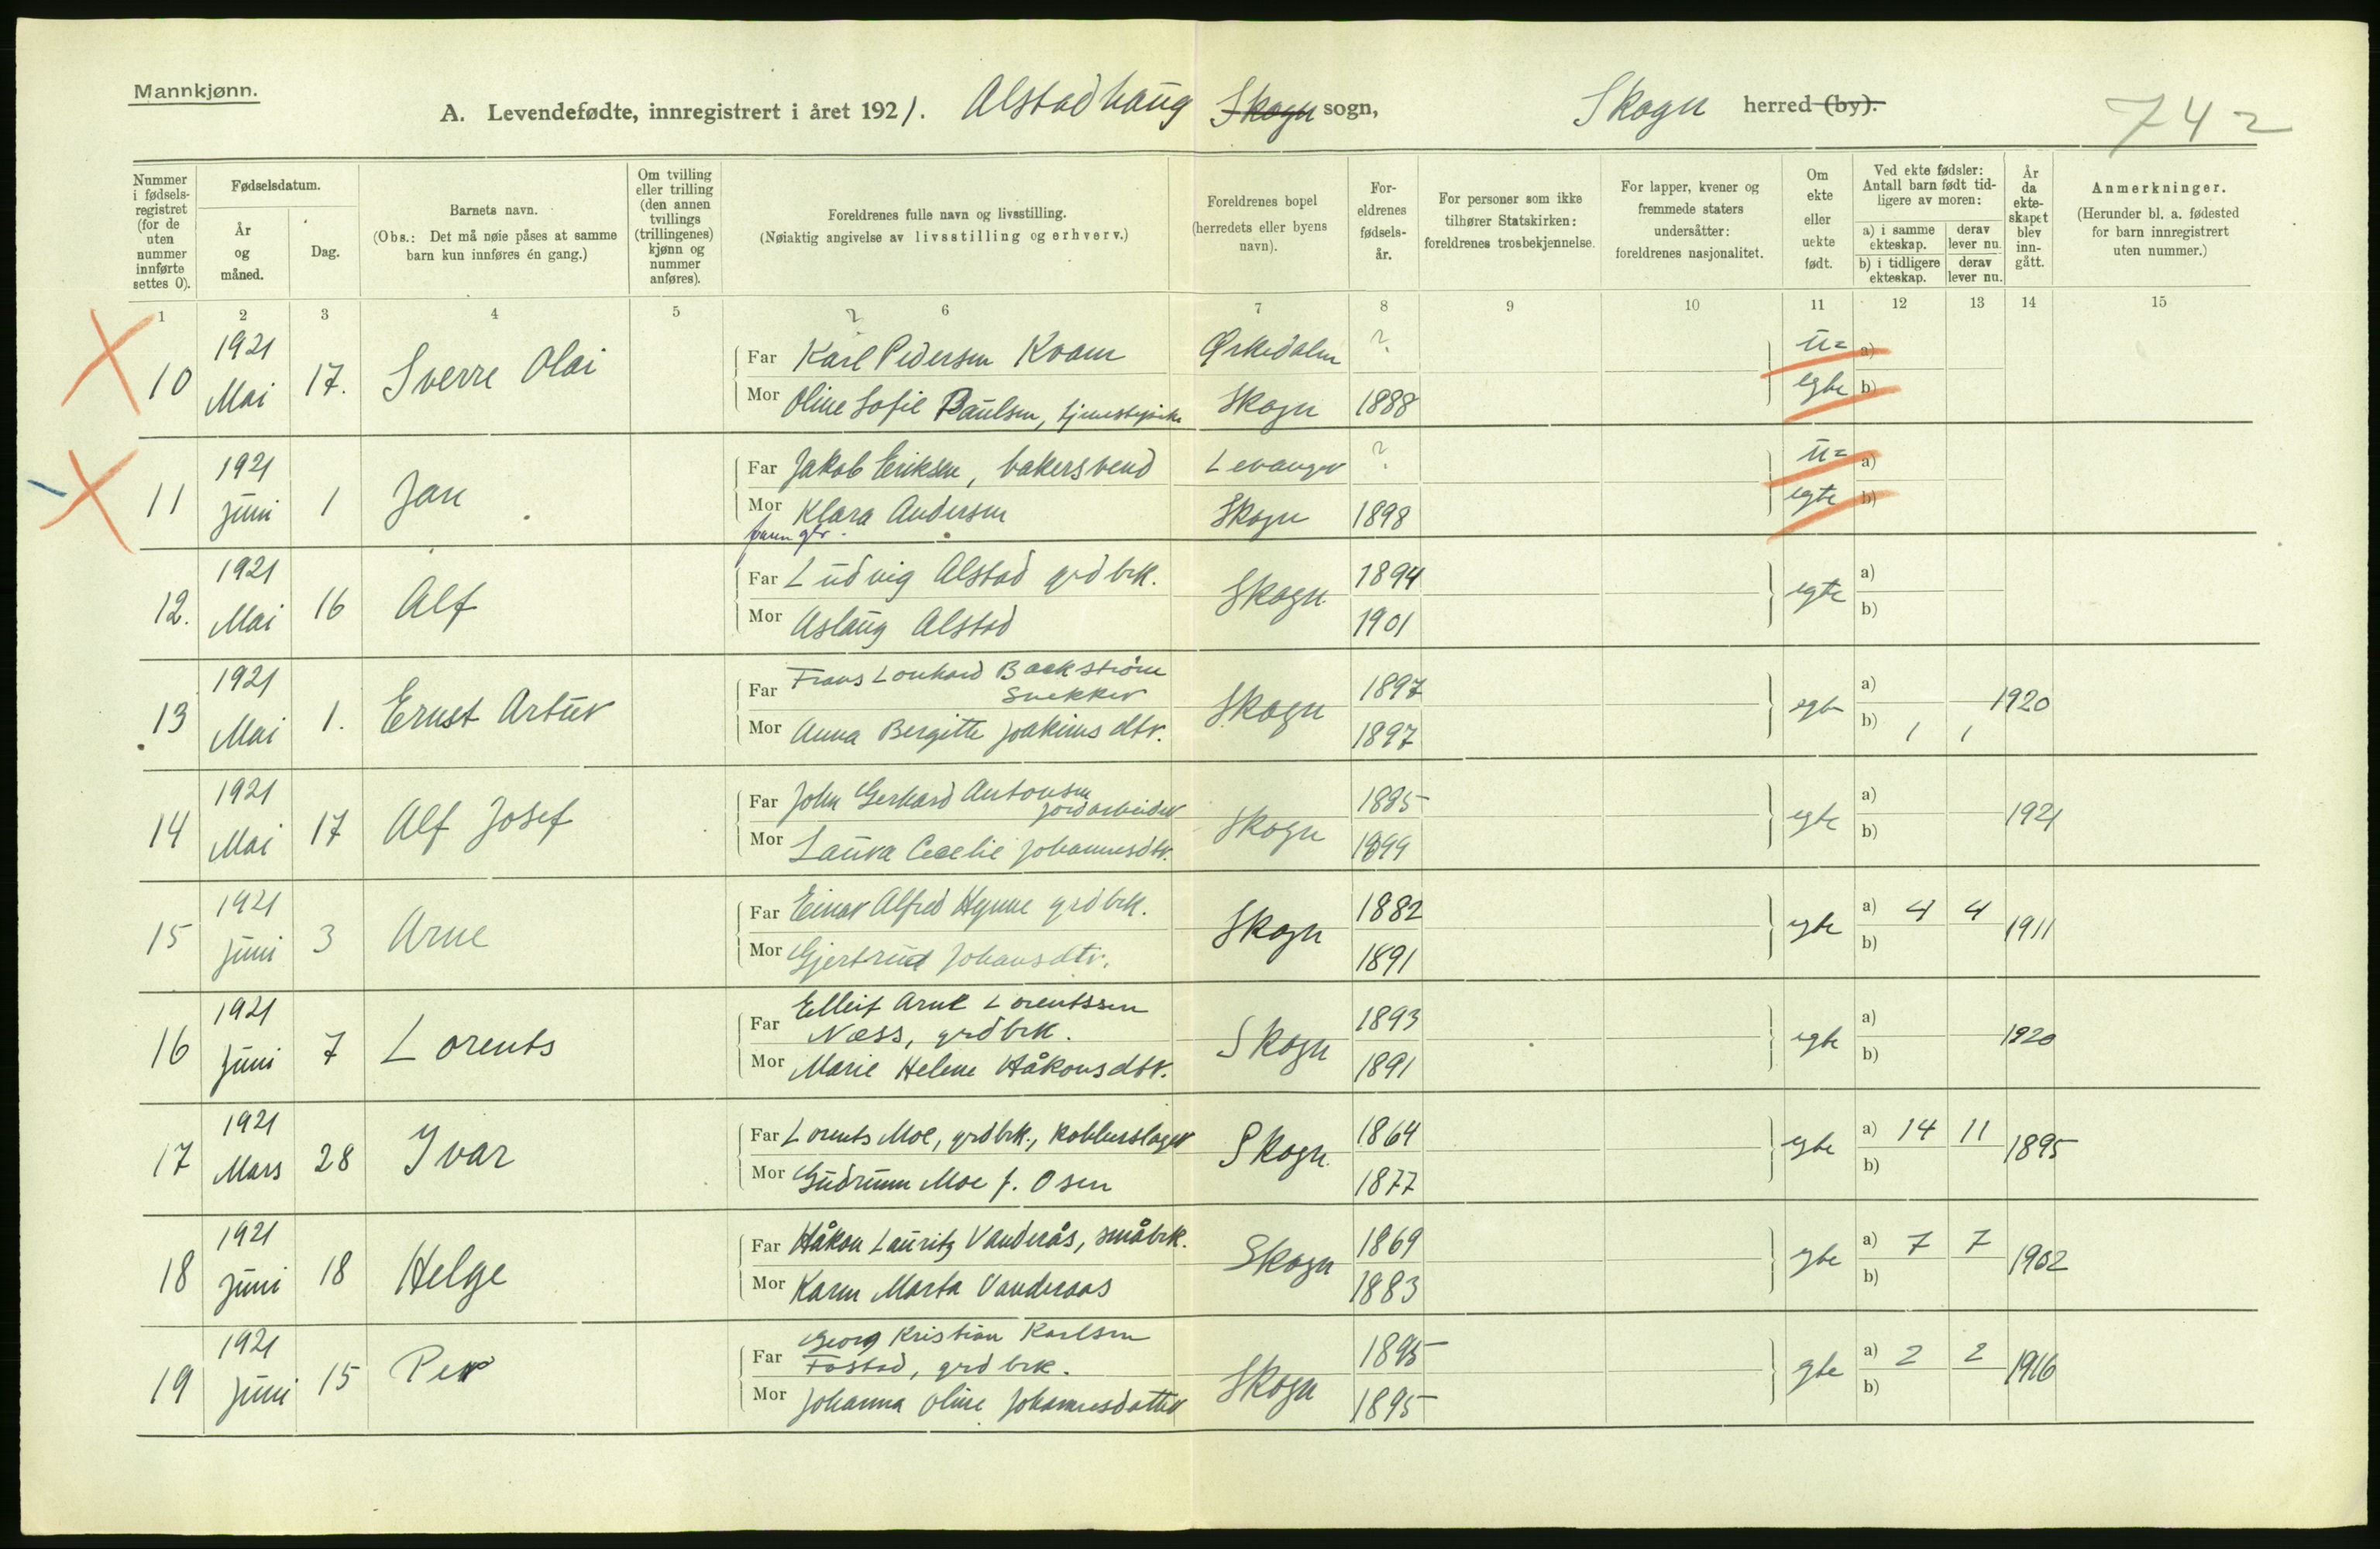 Mannkjønn.
A. Levendefødte, innregistrert i året 1921. Alstadhaug Skogn sogn, Skogn herred (by). 742
Nummer i fødselsregistret (for de uten nummer innførte settes 0).
Fødselsdatum.
År og måned.
Dag.
Barnets navn.
(Obs.: Det må nøie påses at samme barn kun innføres én gang.)
Om tvilling eller trilling (den annen tvillings (trillingenes) kjønn og nummer anføres).
Foreldrenes fulle navn og livsstilling.
(Nøiaktig angivelse av livsstilling og erhverv.)
Foreldrenes bopel (herredets eller byens navn).
Foreldrenes fødselsår.
For personer som ikke tilhører Statskirken: foreldrenes trosbekjennelse.
For lapper, kvener og fremmede staters undersåtter: foreldrenes nasjonalitet.
Om ekte eller uekte født.
Ved ekte fødsler: Antall barn født tidligere av moren:
a) i samme ekteskap. derav lever nu.
b) i tidligere ekteskap. derav lever nu.
År da ekteskapet blev inngått.
Anmerkninger.
(Herunder bl. a. fødested for barn innregistrert uten nummer.)
1 2 3 4 5 6 7 8 9 10 11 12 13 14 15
?
10 1921 Mai 17. Sverre Olai
Far Karl Pedersen Kvam Ørkedalen ? u= a)
Mor Oline Sofie Paulsen, tjenestepike Skogn 1888 egte b)
11 1921 Juni 1 Jan
Far Jakob Eriksen, bakersvend Levanger ? u= a)
Mor Klara Andersen Skogn 1898 egte b)
12. 1921 Mai 16 Alf
Far Ludvig Alstad grdbrk. Skogn 1894 egte a)
Mor Aslaug Alstad 1901 b)
13 1921 Mai 1. Ernst Artur
Far Frans Lonhard Backstrøm Snekker Skogn 1897 egte a) 1920
Mor Anna Bergitte Joakimsdtr. 1897 b) 1 1
14 1921 Mai 17 Alf Josef
Far John Gerhard Antonsen jordarbeider Skogn 1895 egte a) 1921
Mor Laura Cecelie Johannesdtr. 1899 b)
15 1921 Juni 3 Arne
Far Einar Alfred Hynne grdbrk. Skogn 1882 egte a) 4 4 1911
Mor Gjertrud Johansdtr. 1891 b)
16 1921 Juni 7 Lorents
Far Elleif Arne Lorentssen Næss, grdbrk. Skogn 1893 egte a) 1920
Mor Marie Helene Håkonsdtr. 1891 b)
17 1921 Mars 28 Ivar
Far Lorents Moe, grdbrk., kobberslager Skogn 1864 egte a) 14 11 1895
Mor Gudrunn Moe f. Osen 1877 b)
18 1921 Juni 18 Helge
Far Håkon Lauritz Vanderås, småbrk. Skogn 1869 egte a) 7 7 1902
Mor Karen Marta Vanderaas 1883 b)
19 1921 Juni 15 Per
Far Georg Kristian Karlsen Fostad, grdbrk. Skogn 1895 egte a) 2 2 1916
Mor Johanna Oline Johannesdatter 1895 b)